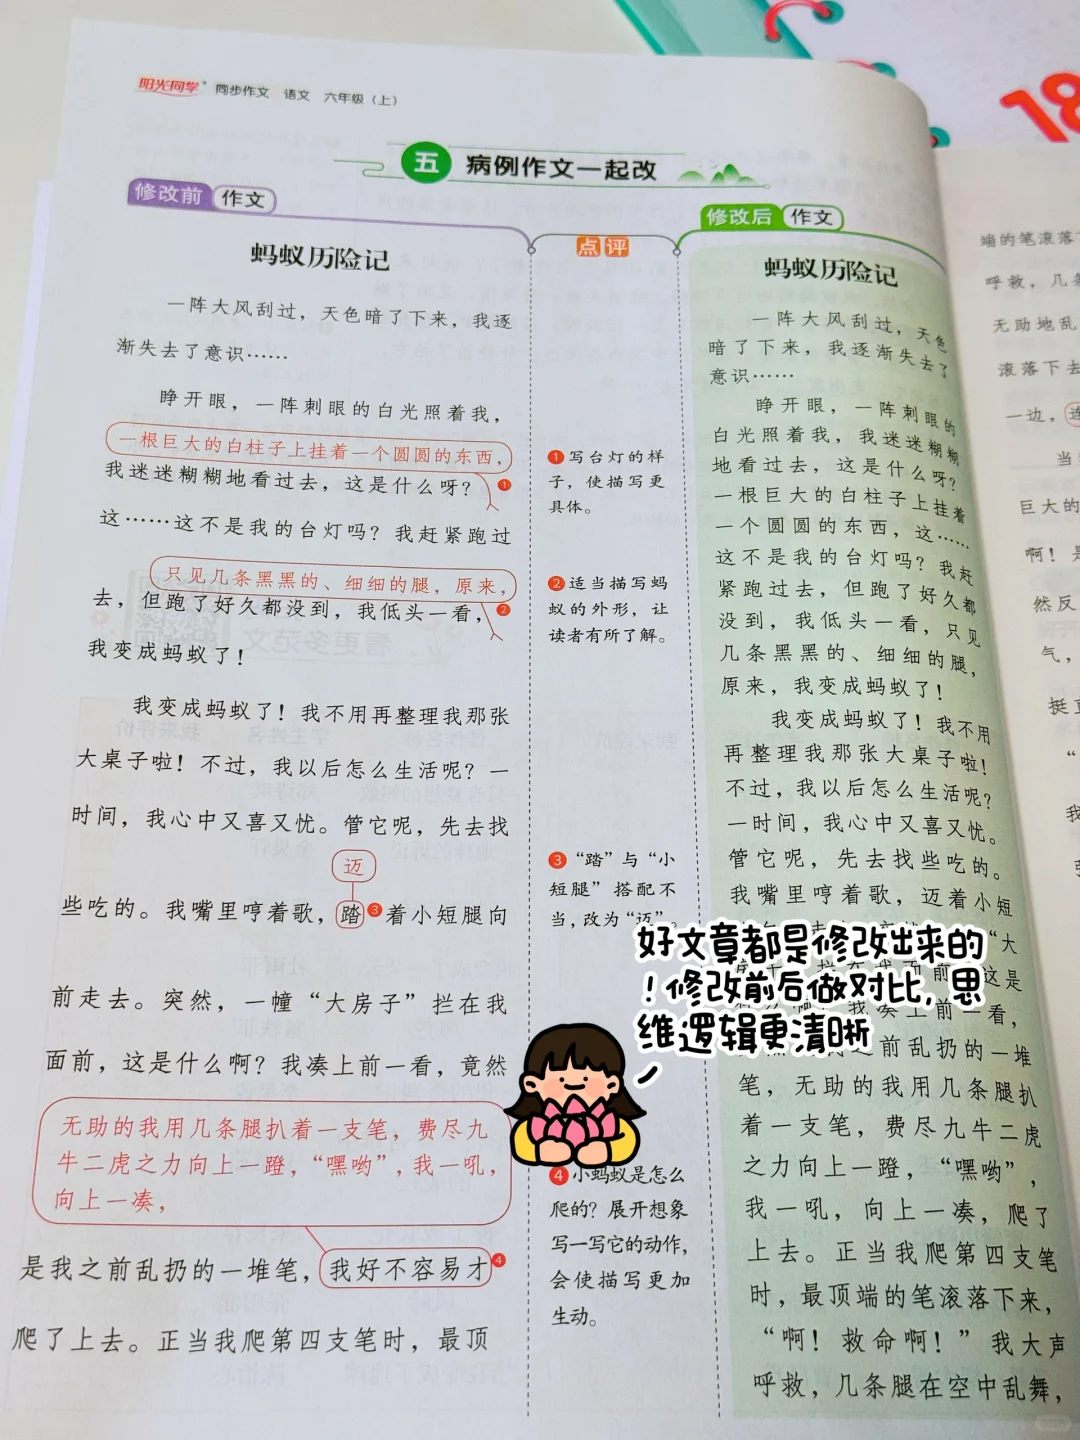 阳光同学 同步作文 语文 六年级（上）
18
五 病例作文一起改
修改前 作文
蚂蚁历险记
一阵大风刮过，天色暗了下来，我逐
渐失去了意识……
睁开眼，一阵刺眼的白光照着我，
一根巨大的白柱子上挂着一个圆圆的东西，
我迷迷糊糊地看过去，这是什么呀？❶
这……这不是我的台灯吗？我赶紧跑过
只见几条黑黑的、细细的腿，原来，
去，但跑了好久都没到，我低头一看，❷
我变成蚂蚁了！
我变成蚂蚁了！我不用再整理我那张
大桌子啦！不过，我以后怎么生活呢？一
时间，我心中又喜又忧。管它呢，先去找
迈
些吃的。我嘴里哼着歌，踏❸着小短腿向
前走去。突然，一幢“大房子”拦在我
面前，这是什么啊？我凑上前一看，竟然
无助的我用几条腿扒着一支笔，费尽九
牛二虎之力向上一蹬，“嘿哟”，我一吼，
向上一凑，
是我之前乱扔的一堆笔，我好不容易才❹
爬了上去。正当我爬第四支笔时，最顶
点评
❶写台灯的样
子，使描写更
具体。
❷适当描写蚂
蚁的外形，让
读者有所了解。
❸“踏”与“小
短腿”搭配不
当，改为“迈”。
❹小蚂蚁是怎么
爬的？展开想象
写一写它的动作，
会使描写更加
生动。
修改后 作文
蚂蚁历险记
一阵大风刮过，天色
暗了下来，我逐渐失去了
意识……
睁开眼，一阵刺眼的
白光照着我，我迷迷糊糊
地看过去，这是什么呀？
一根巨大的白柱子上挂着
一个圆圆的东西，这……
这不是我的台灯吗？我赶
紧跑过去，但跑了好久都
没到，我低头一看，只见
几条黑黑的、细细的腿，
原来，我变成蚂蚁了！
我变成蚂蚁了！我不用
再整理我那张大桌子啦！
不过，我以后怎么生活呢？
一时间，我心中又喜又忧。
管它呢，先去找些吃的。
我嘴里哼着歌，迈着小短
“大
拦在我面前
这是
我凑上前一看，
之前乱扔的一堆
笔，无助的我用几条腿扒
着一支笔，费尽九牛二虎
之力向上一蹬，“嘿哟”，
我一吼，向上一凑，爬了
上去。正当我爬第四支笔
时，最顶端的笔滚落下来，
“啊！救命啊！”我大声
呼救，几条腿在空中乱舞，
好文章都是修改出来的
！修改前后做对比，思
维逻辑更清晰
端的笔滚落
呼救，几
无助地乱
滚落下去
一边，
当
巨大的
啊！
然反
气，
挺直
我